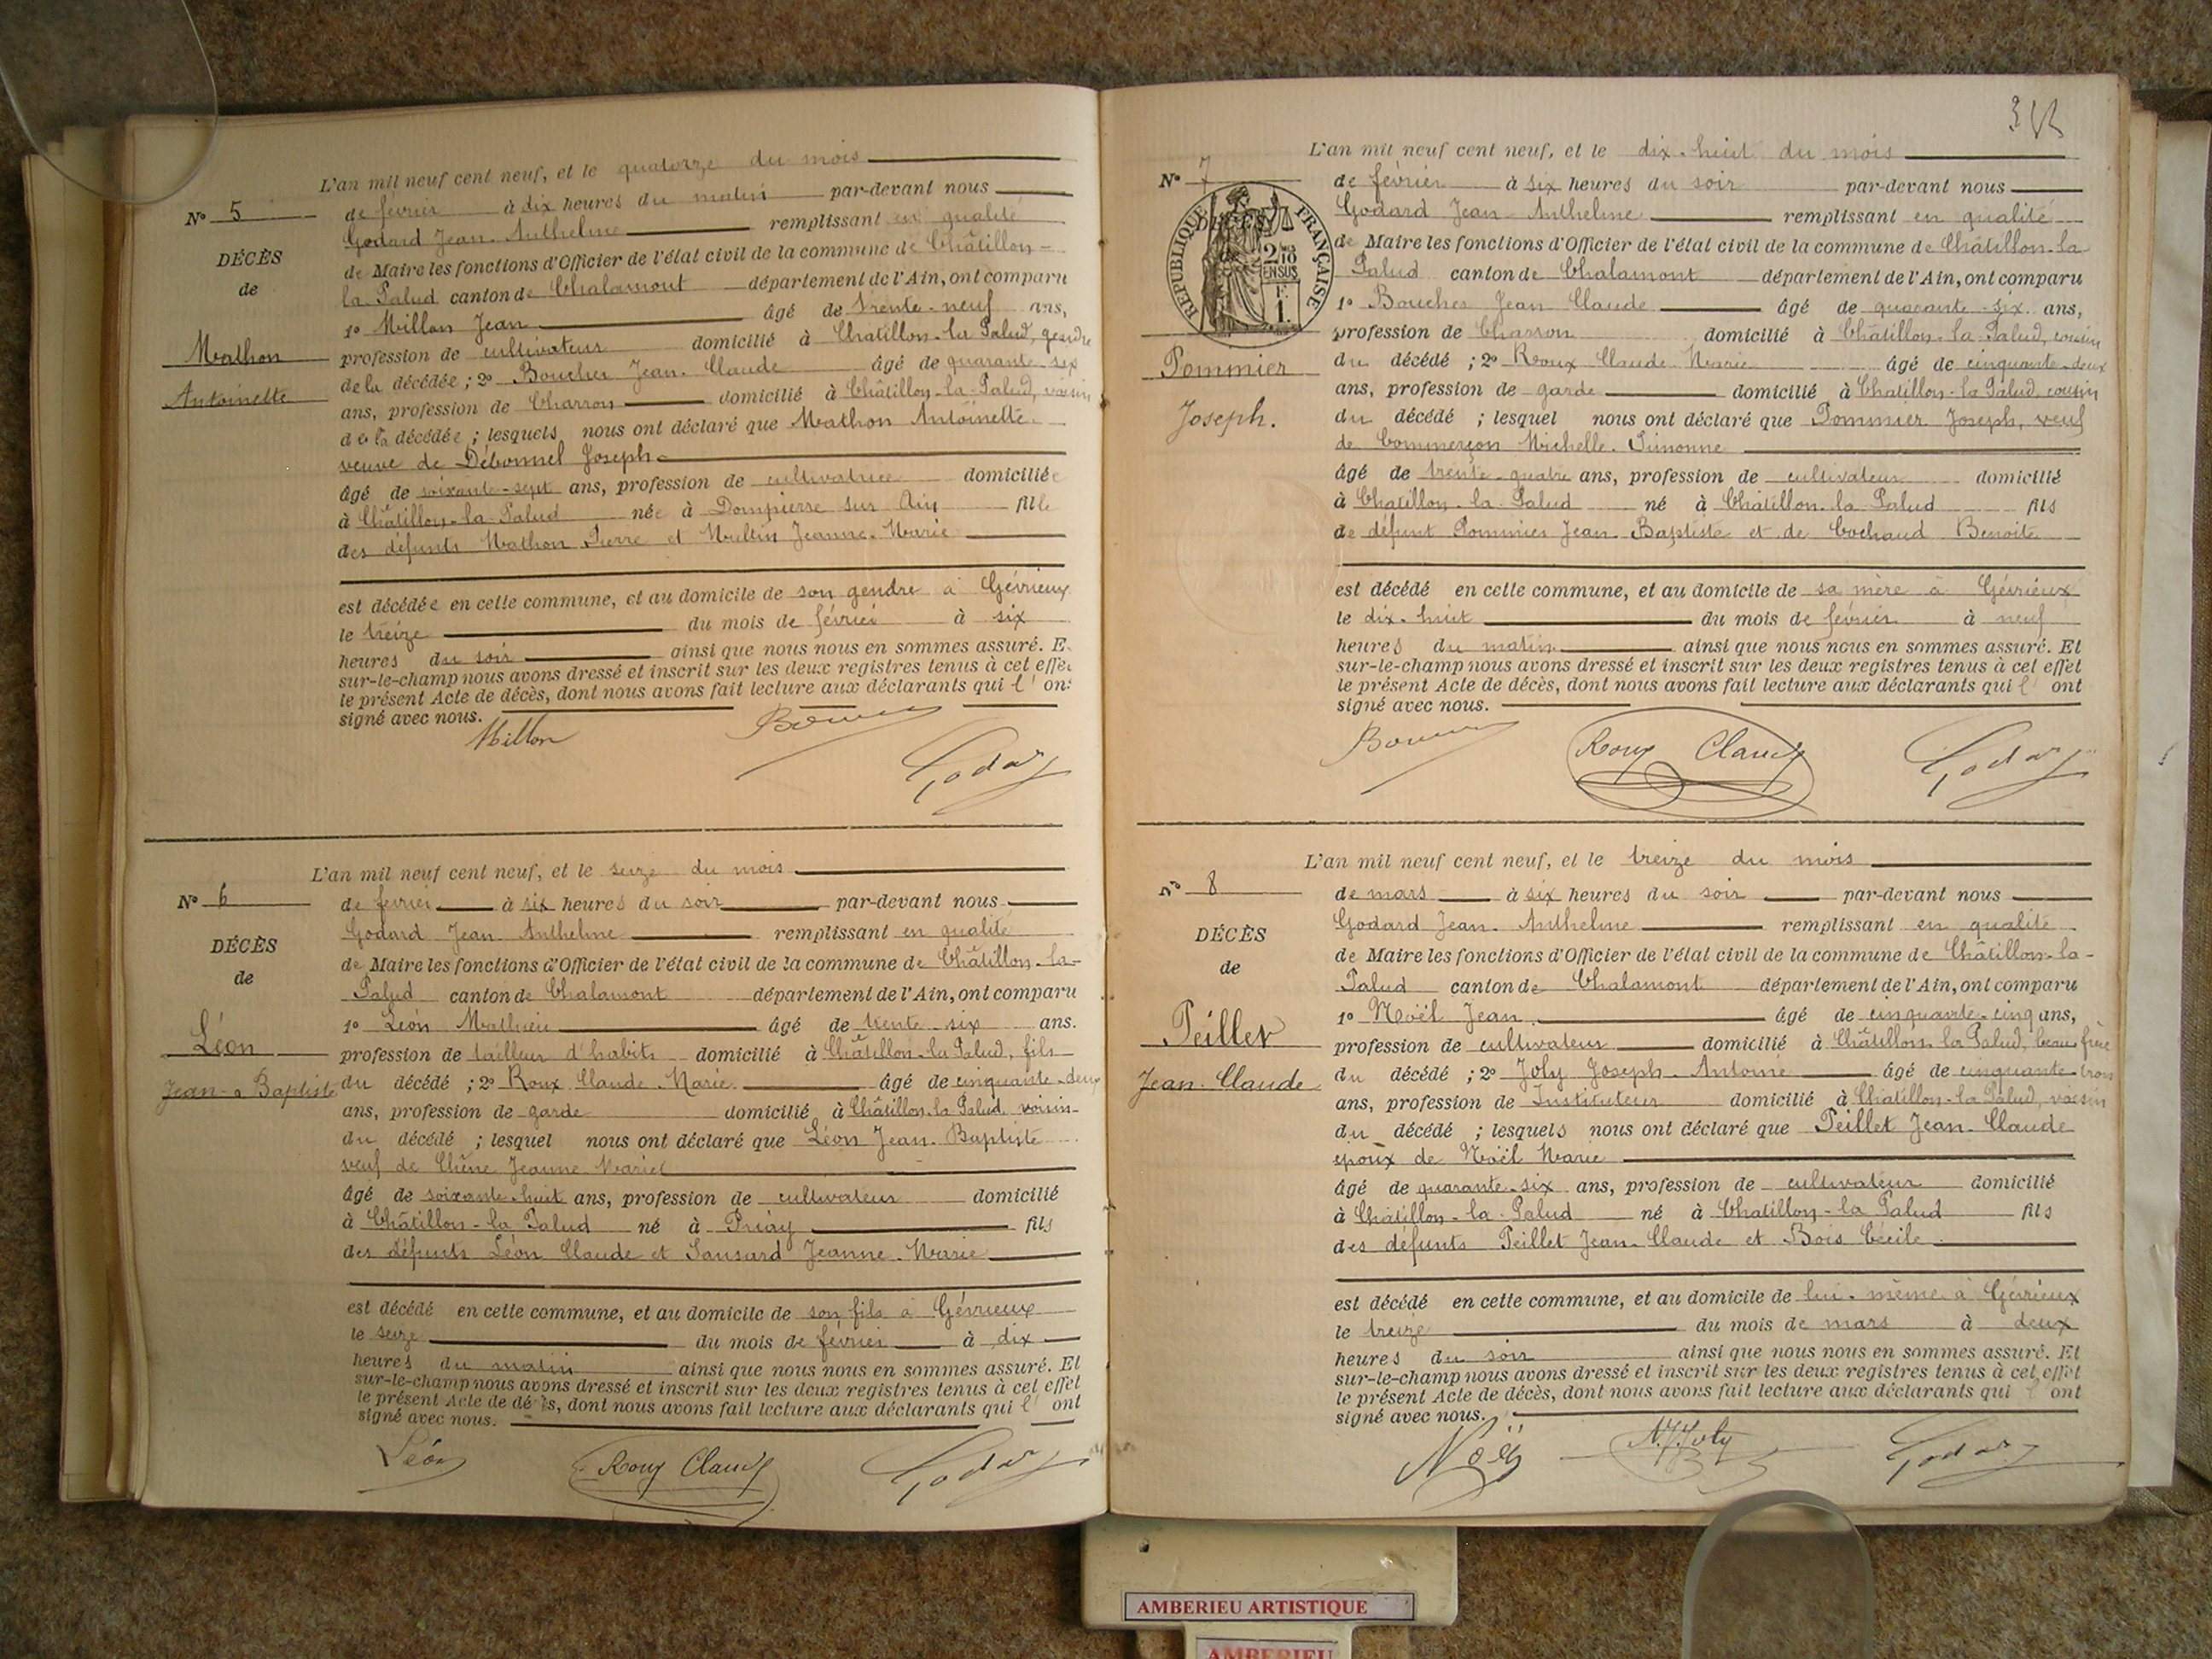 L'an mil neuf cent neuf, et le quatorze du mois
N° 5
de février à dix heures du matin par-devant nous
Godard Jean-Anthelme remplissant en qualité
DÉCÈS
de Maire les fonctions d'Officier de l'état civil de la commune de Châtillon-
de
la Palud canton de Chalamont département de l'Ain, ont comparu
1° Millon Jean âgé de trente-neuf ans,
Mathon
profession de cultivateur domicilié à Châtillon-la Palud, gendre
de la décédée ; 2° Boucher Jean-Claude âgé de quarante-six
Antoinette
ans, profession de Charron domicilié à Châtillon-la-Palud, voisin
de la décédée ; lesquels nous ont déclaré que Mathon Antoinette
veuve de Débonnel Joseph
âgé de soixante-sept ans, profession de cultivatrice domiciliée
à Châtillon-la-Palud née à Dompierre sur Ain fille
des défunts Mathon Pierre et Jeanne-Marie
est décédée en cette commune, et au domicile de son gendre à Gévrieux
le treize du mois de février à six
heures du soir ainsi que nous nous en sommes assuré. E
sur-le-champ nous avons dressé et inscrit sur les deux registres tenus à cet effet
le présent Acte de décès, dont nous avons fait lecture aux déclarants qui l' ont
signé avec nous.
Millon Godard
L'an mil neuf cent neuf, et le seize du mois
N° 6
de février à six heures du soir par-devant nous
Godard Jean-Anthelme remplissant en qualité
DÉCÈS
de Maire les fonctions d'Officier de l'état civil de la commune de Châtillon-la-
de
Palud canton de Chalamont département de l'Ain, ont comparu
1° Léon Mathieu âgé de trente-six ans.
Léon
profession de tailleur d'habits domicilié à Châtillon-la Palud, fils
Jean-Baptiste
du décédé ; 2° Roux Claude-Marie âgé de cinquante-deux
ans, profession de garde domicilié à Châtillon-la Palud voisin
du décédé ; lesquel nous ont déclaré que Léon Jean-Baptiste
veuf de Chêne Jeanne Marie
âgé de soixante-huit ans, profession de cultivateur domicilié
à Châtillon-la Palud né à Priay fils
des défunts Léon Claude et Sansard Jeanne-Marie
est décédé en cette commune, et au domicile de son fils à Gévrieux
le seize du mois de février à dix
heures du matin ainsi que nous nous en sommes assuré. Et
sur-le-champ nous avons dressé et inscrit sur les deux registres tenus à cet effet
le présent Acte de décès, dont nous avons fait lecture aux déclarants qui l' ont
signé avec nous.
Léon Roux Claude Godard
L'an mil neuf cent neuf, et le dix-huit du mois
N° 7
de février à six heures du soir par-devant nous
Godard Jean-Anthelme remplissant en qualité
RÉPUBLIQUE FRANÇAISE
2/10 EN SUS
F. 1.
de Maire les fonctions d'Officier de l'état civil de la commune de Châtillon-la
Palud canton de Chalamont département de l'Ain, ont comparu
1° Boucher Jean Claude âgé de quarante-six ans,
profession de Charron domicilié à Châtillon-la-Palud, cousin
Pommier
du décédé ; 2° Roux Claude Marie âgé de cinquante-deux
ans, profession de garde domicilié à Châtillon-la Palud, cousin
Joseph.
du décédé ; lesquel nous ont déclaré que Pommier Joseph, veuf
de Commerçon Michelle-Simonne
âgé de trente-quatre ans, profession de cultivateur domicilié
à Châtillon-la-Palud né à Châtillon-la Palud fils
de défunt Pommier Jean-Baptiste et de Cochaud Benoite
est décédé en cette commune, et au domicile de sa mère à Gévrieux
le dix-huit du mois de février à neuf
heures du matin ainsi que nous nous en sommes assuré. Et
sur-le-champ nous avons dressé et inscrit sur les deux registres tenus à cet effet
le présent Acte de décès, dont nous avons fait lecture aux déclarants qui l' ont
signé avec nous.
Roux Claude Godard
L'an mil neuf cent neuf, et le treize du mois
N° 8
de mars à six heures du soir par-devant nous
Godard Jean-Anthelme remplissant en qualité
DÉCÈS
de Maire les fonctions d'Officier de l'état civil de la commune de Châtillon-la-
de
Palud canton de Chalamont département de l'Ain, ont comparu
1° Noël Jean âgé de cinquante-cinq ans,
Peillet
profession de cultivateur domicilié à Châtillon-la Palud, beau frère
Jean-Claude
du décédé ; 2° Joly Joseph-Antoine âgé de cinquante-trois
ans, profession de Instituteur domicilié à Châtillon-la Palud, voisin
du décédé ; lesquels nous ont déclaré que Peillet Jean-Claude
époux de Noël Marie
âgé de quarante-six ans, profession de cultivateur domicilié
à Châtillon-la-Palud né à Châtillon-la Palud fils
des défunts Peillet Jean-Claude et Bois Cécile
est décédé en cette commune, et au domicile de lui-même à Gévrieux
le treize du mois de mars à deux
heures du soir ainsi que nous nous en sommes assuré. Et
sur-le-champ nous avons dressé et inscrit sur les deux registres tenus à cet effet
le présent Acte de décès, dont nous avons fait lecture aux déclarants qui l' ont
signé avec nous.
Noël Joly Godard
AMBERIEU ARTISTIQUE
AMBERIEU